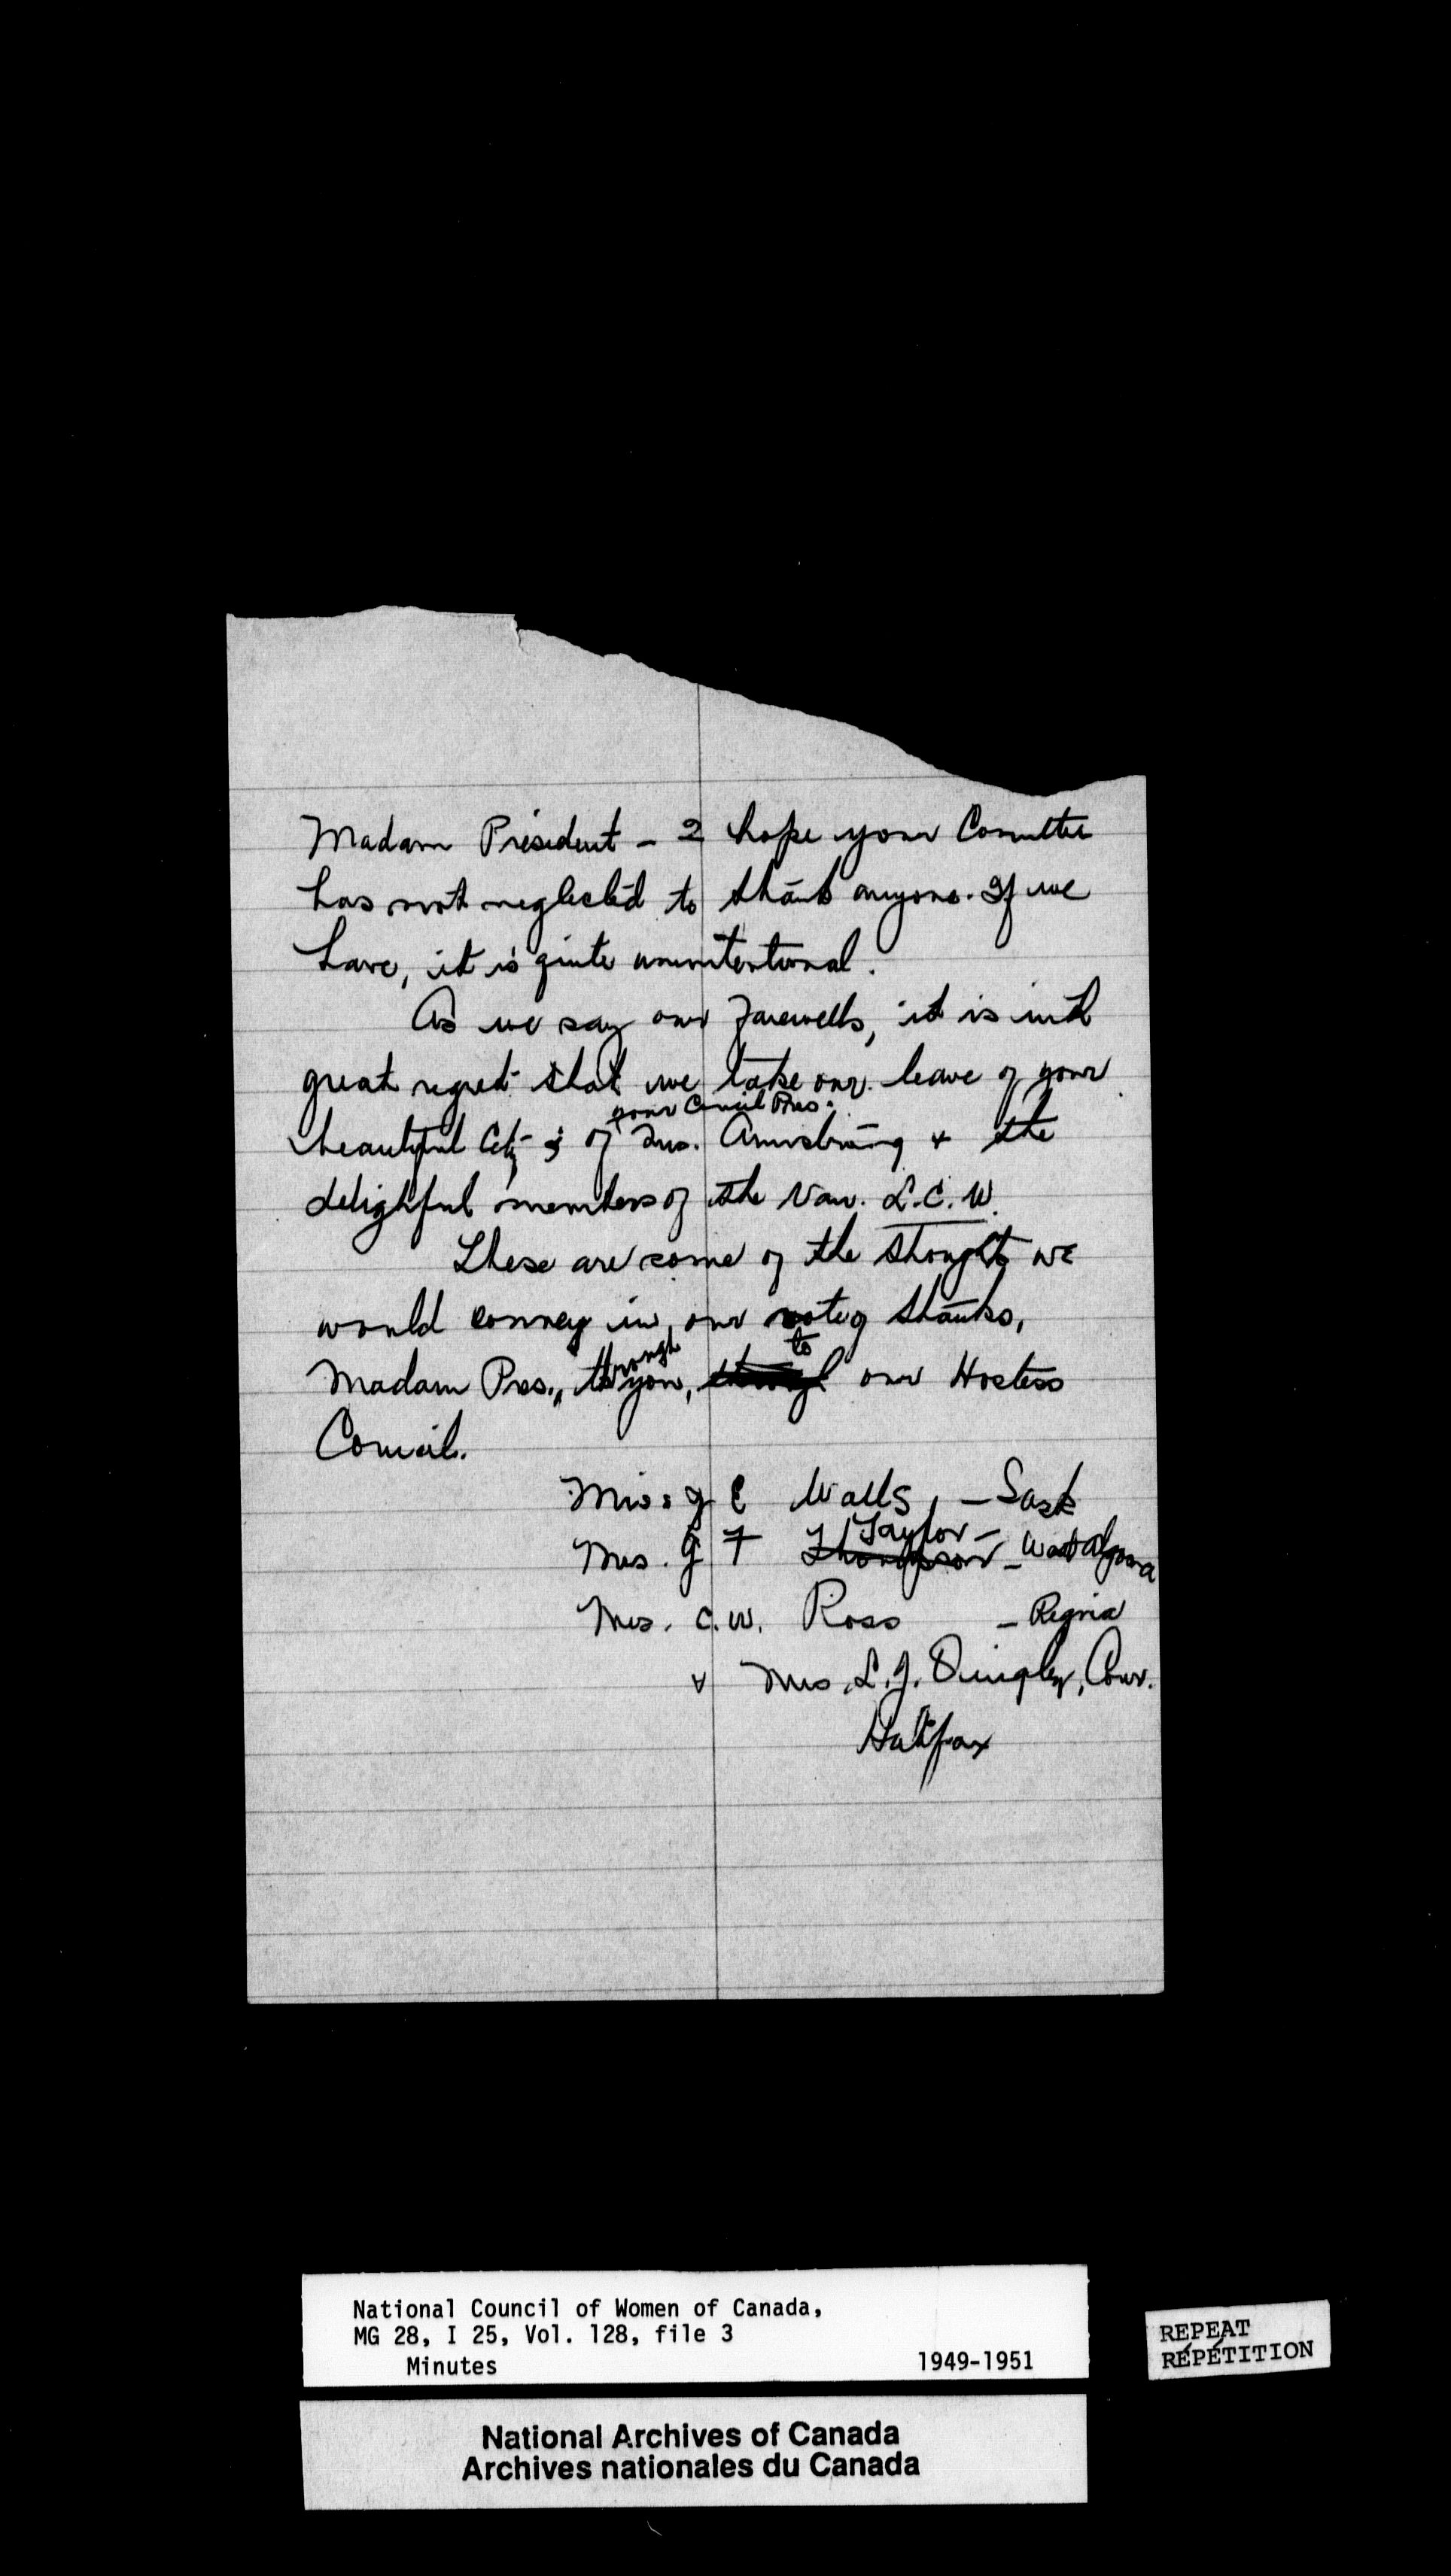 Madam President - I hope your Committee
has not neglected to thank anyone. If we
have, it is quite unintentional.
As we say our farewells, it is with
great regret that we take our leave of your
your Council Pres.
beautiful City & of Mrs. Armstrong & the
delightful members of the Van. L.C.W.
These are some of the thoughts we
would convey in our vote of thanks,
through to
Madam Pres., to you, through our Hostess
Council.
Miss J E Walls, - Sask
Taylor -
Mrs. G F Thompson - West Algoma
Mrs. C.W. Ross - Regina
& Mrs. L.J. Dingley, Conv.
Halifax
National Council of Women of Canada,
MG 28, I 25, Vol. 128, file 3
Minutes 1949-1951
REPEAT
RÉPÉTITION
National Archives of Canada
Archives nationales du Canada